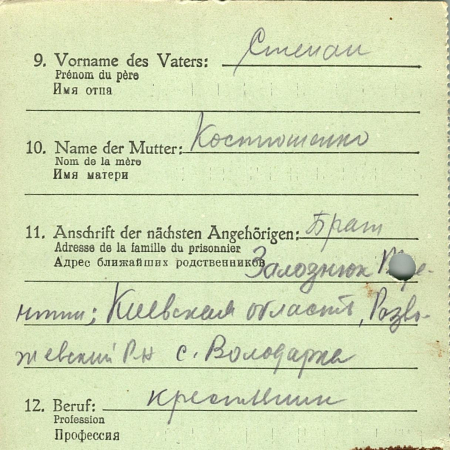 9. Vorname des Vaters: Степан
Prénom du père
Имя отца
10. Name der Mutter: Костюшенко
Nom de la mère
Имя матери
11. Anschrift der nächsten Angehörigen: Брат
Adresse de la famille du prisonnier
Адрес ближайших родственников Залознюк
Киевская область, Розва-
жевский Р-н с. Володарка
12. Beruf: крестьянин
Profession
Профессия